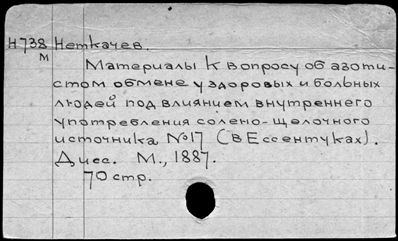 Н738 Неткачев.
м
Материалы к вопросу об азоти-
стом обмене у здоровых и больных
людей под влиянием внутреннего
употребления солено-щелочного
источника №17 (в Ессентуках).
Дисс. М., 1887.
70 стр.